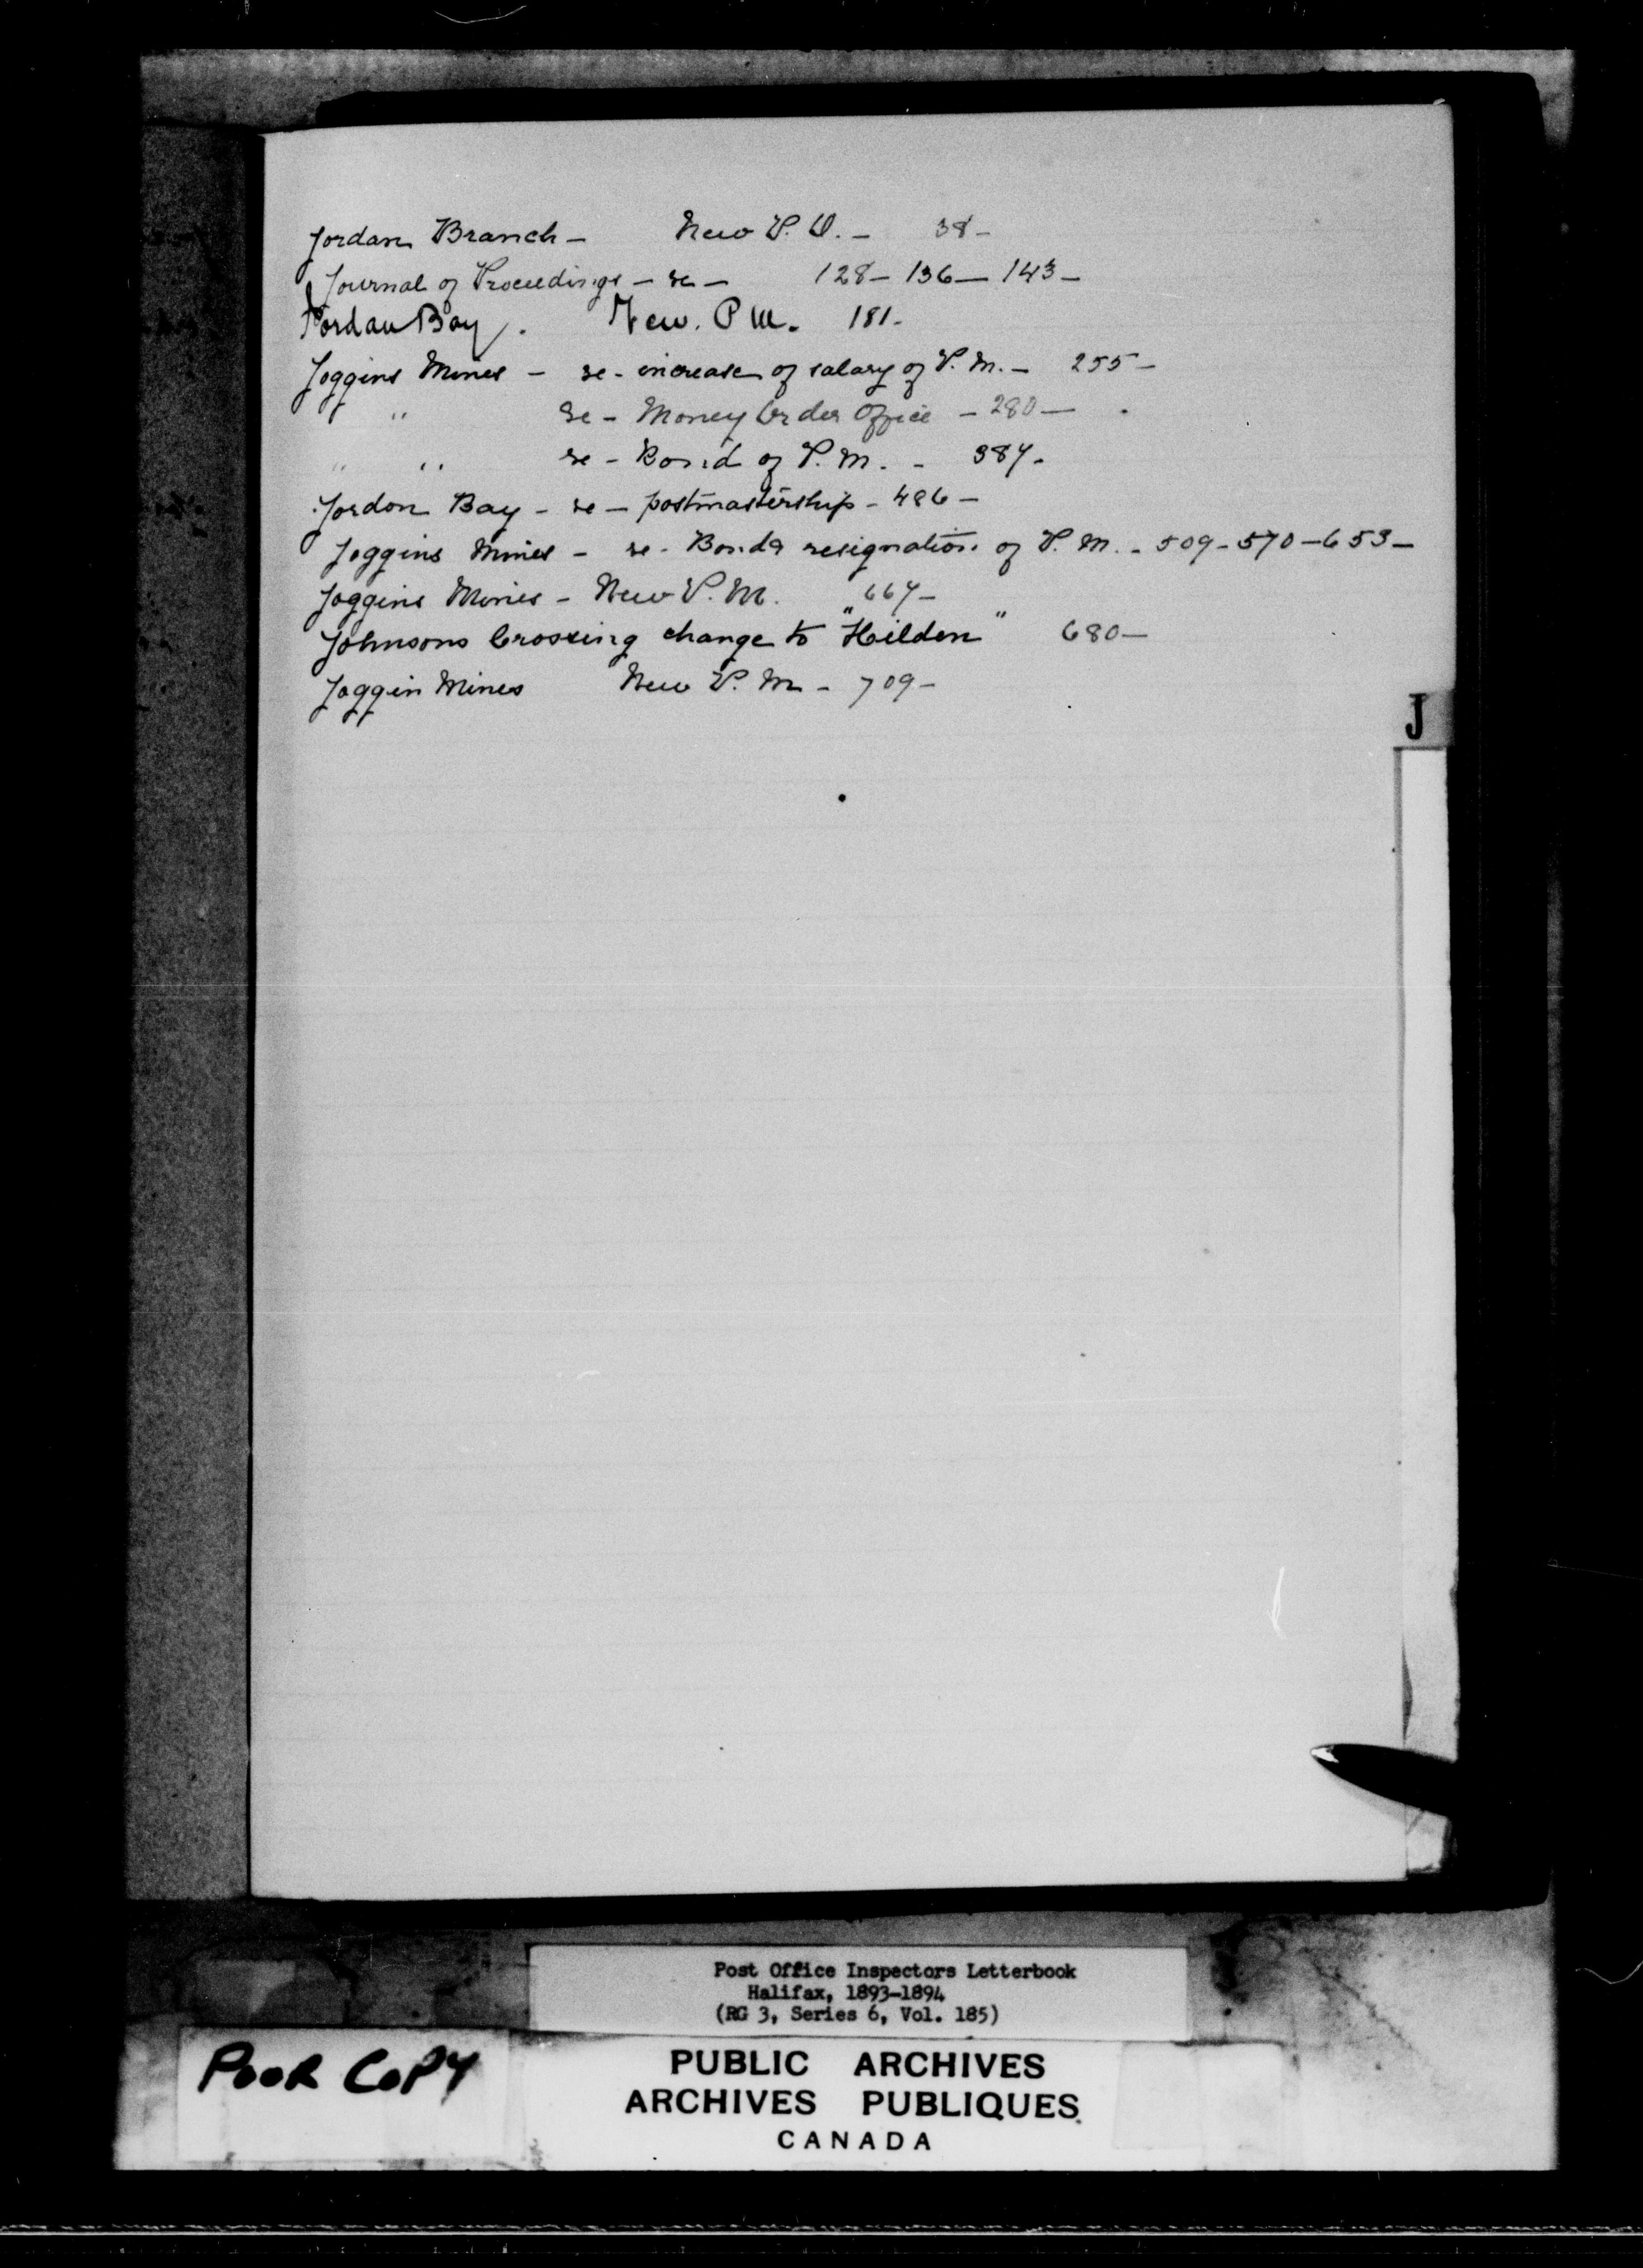 Jordan Branch - New P. O. - 38 -
Journal of Proceedings - re - 128 - 136 - 143 -
Jordan Bay. New. P M. 181 -
Joggins Mines - re - increase of salary of P. M. - 255 -
" re - Money Order Office - 280 -
" " re - Bond of P. M. - 387 -
Jordon Bay - re - postmastership - 486 -
Joggins Mines - re - Bonds resignation of P. M. - 509 - 570 - 653 -
Joggins Mines - New P. M. 667 -
Johnsons Crossing change to "Hilden" 680 -
Joggin Mines New P. M - 709 -
J
Post Office Inspectors Letterbook
Halifax, 1893-1894
(RG 3, Series 6, Vol. 185)
POOR COPY
PUBLIC ARCHIVES
ARCHIVES PUBLIQUES
CANADA